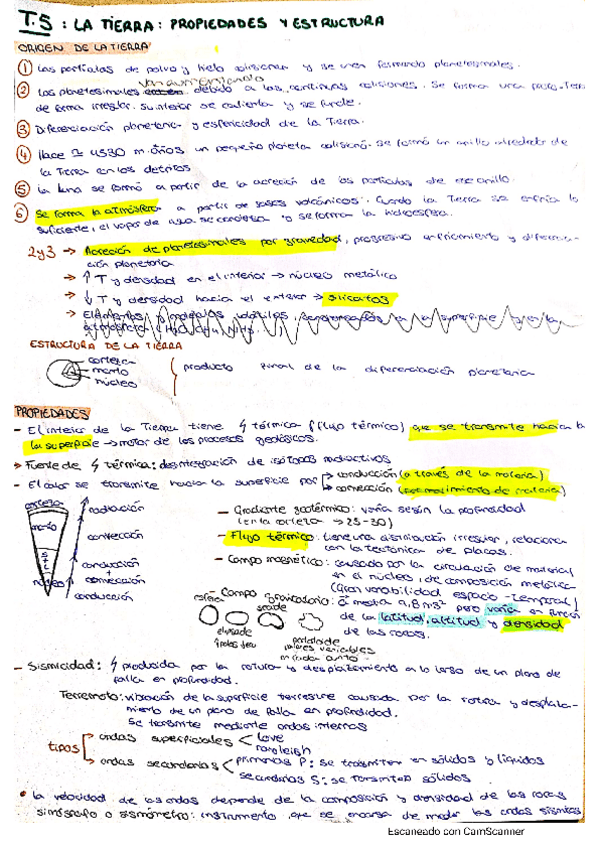 T.5: LA TIERRA: PROPIEDADES Y ESTRUCTURA
ORIGEN DE LA TIERRA
① Las partículas de polvo y hielo colisionan y se van formando planetesimales.
van aumentando
② Los planetesimales debido a las continuas colisiones. Se forma una proto-Tierra
de forma irregular. Su interior se calienta y se funde.
③ Diferenciación planetaria y esfericidad de la Tierra.
④ Hace ≅ 4530 m. años un pequeño planeta colisionó. Se formó un anillo alrededor de
la Tierra con los detritos
⑤ La luna se formó a partir de la acreción de las partículas de ese anillo.
⑥ Se forma la atmósfera a partir de gases volcánicos. Cuando la Tierra se enfría lo
suficiente, el vapor de agua se condensa y se forma la hidrosfera.
2y3 → Acreción de planetesimales por gravedad, progresivo enfriamiento y diferen-
ciación planetaria
→ ↑ T y densidad en el interior → núcleo metálico
→ ↓ T y densidad hacia el exterior → silicatos
→ Elementos y moléculas volátiles en la superficie
ESTRUCTURA DE LA TIERRA
corteza
manto
núcleo
producto final de la diferenciación planetaria
PROPIEDADES
- El interior de la Tierra tiene ϟ térmica (flujo térmico) que se transmite hacia
la superficie → motor de los procesos geológicos.
→ Fuente de ϟ térmica: desintegración de isótopos radiactivos
- El calor se transmite hacia la superficie por → conducción (a través de la materia)
→ convección (por movimiento de materia)
corteza
manto
núcleo
radiación
convección
conducción
+
convección
conducción
- Gradiente geotérmico: varía según la profundidad
(en la corteza → 25-30)
- Flujo térmico: tiene una distribución irregular, relaciona
con la tectónica de placas.
- Campo magnético: causado por la circulación de material
en el núcleo, de composición metálica
(Gran variabilidad espacio-temporal)
- Campo gravitatorio: 9,8 ms² pero varía en función
de la latitud, altitud y densidad
de las rocas.
esfera
geoide
valores variables
- Sismicidad: ϟ producida por la rotura y desplazamiento a lo largo de un plano de
falla en profundidad.
Terremoto: vibración de la superficie terrestre causada por la rotura y desplaza-
miento de un plano de falla en profundidad.
Se transmite mediante ondas internas
tipos
ondas superficiales < love
rayleigh
ondas secundarias < primarias P: se transmiten en sólidos y líquidos
secundarias S: se transmiten sólidos.
• La velocidad de las ondas depende de la composición y densidad de las rocas
simógrafo o sismómetro: instrumento que se encarga de medir las ondas sísmicas
Escaneado con CamScanner